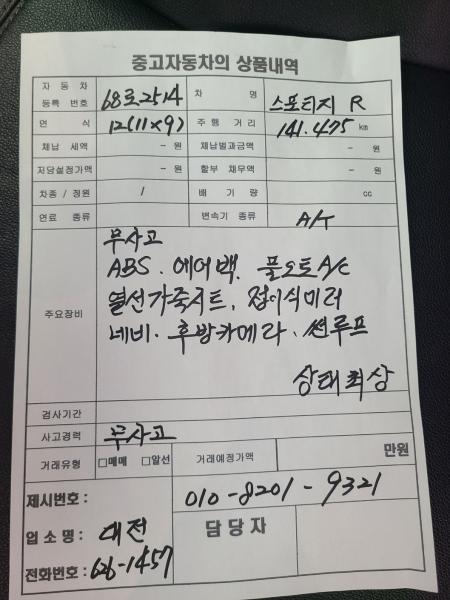 중고자동차의 상품내역
자 동 차 등록 번호 68로2514 차 명 스포티지 R
연 식 12(11x9) 주 행 거 리 141.475 km
체납 세액 - 원 체납벌과금액 - 원
저당설정가액 - 원 할부 채무액 - 원
차종 / 정원 / 배 기 량 cc
연료 종류 변속기 종류 A/T
주요장비
무사고
ABS. 에어백. 풀오토A/C
열선가죽시트. 접이식미러
네비. 후방카메라. 썬루프
상태최상
검사기간
사고경력 무사고
거래유형 □매매 □알선 거래예정가액 만원
제시번호 : 010-8201-9321
업 소 명 : 대전 담 당 자
전화번호 : 626-1457